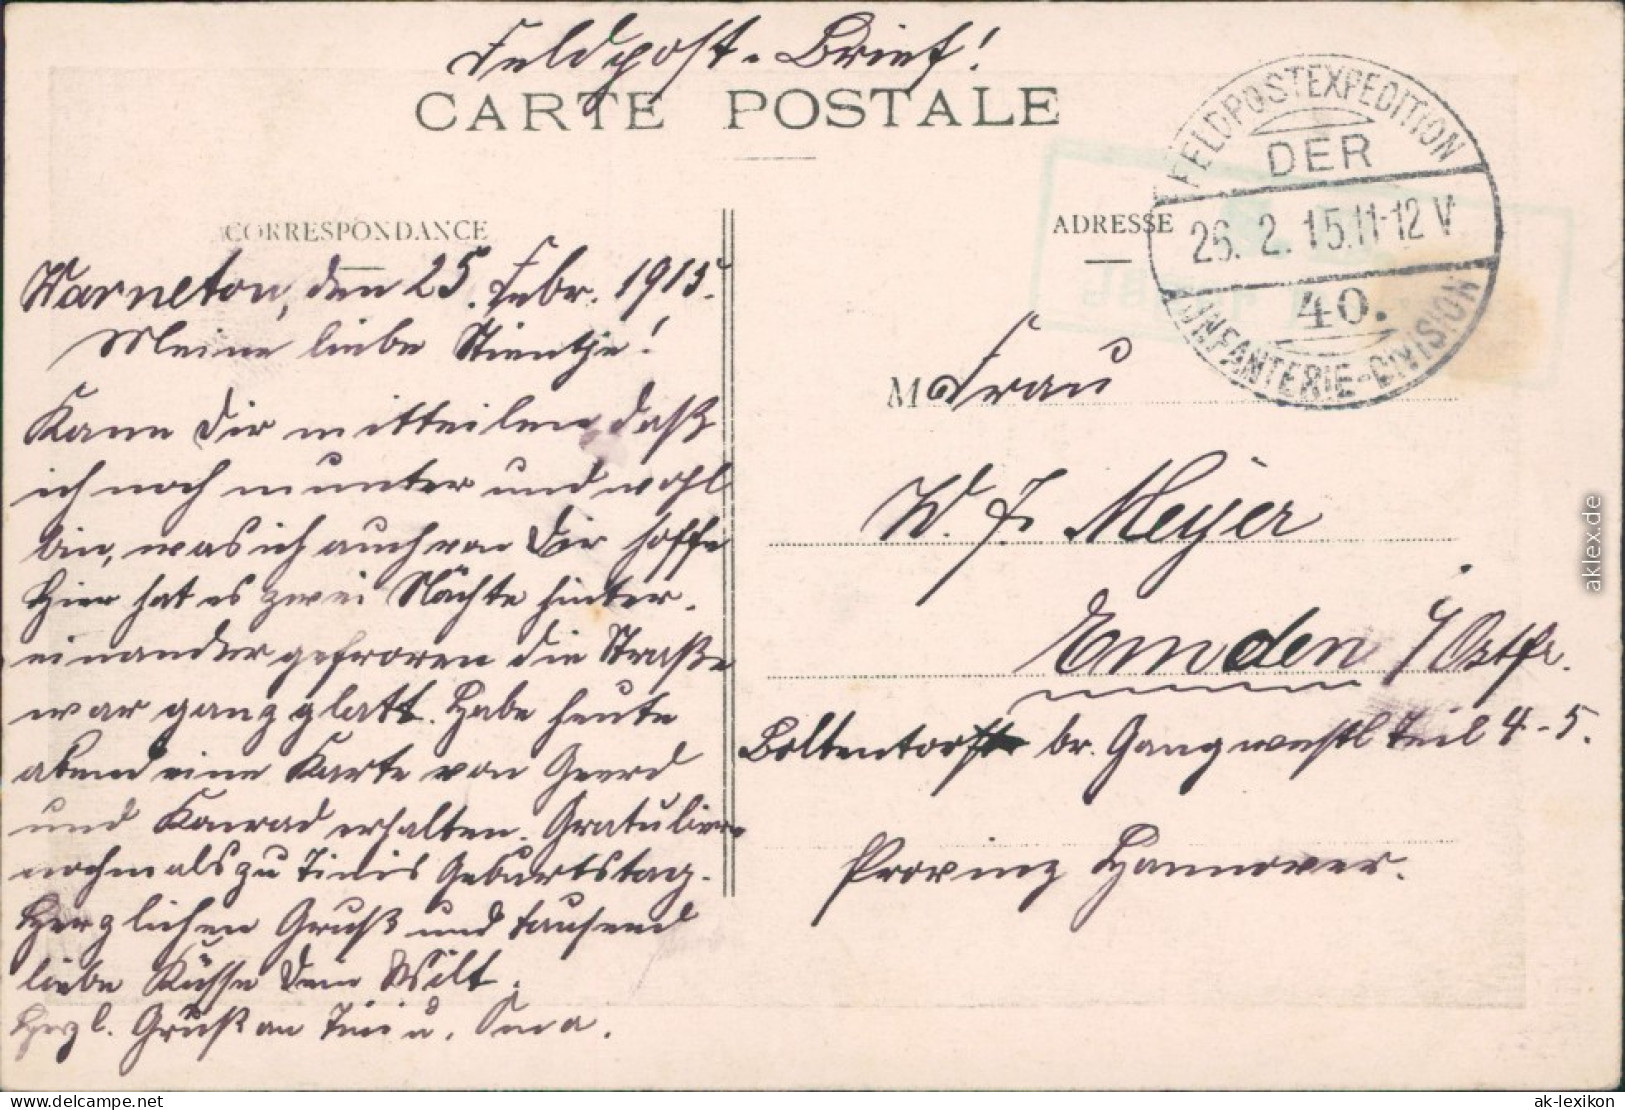 Feldpost-Brief!
CARTE POSTALE
CORRESPONDANCE
Warneton, den 25. Febr. 1915.
Meine liebe Stientje!
Kann Dir mitteilen daß
ich noch munter und wohl
bin, was ich auch von Dir hoffe
Hier hat es zwei Nächte hinter-
einander gefroren die Straße
war ganz glatt. Habe heute
abend eine Karte von Geerd
und Konrad erhalten. Gratuliere
nochmals zu Tinis Geburtstag.
Herzlichen Gruß und tausend
liebe Küsse Dein Wilt.
Herzl. Gruß an Tini u. Oma.
FELDPOSTEXPEDITION
DER
26. 2. 15. 11-12 V
40.
INFANTERIE-DIVISION
ADRESSE
M Frau
W. J. Meyer
Emden / Ostfr.
Boltentorstr br. Gang westl Teil 4-5.
Provinz Hannover.
aklex.de
www.delcampe.net
ak-lexikon